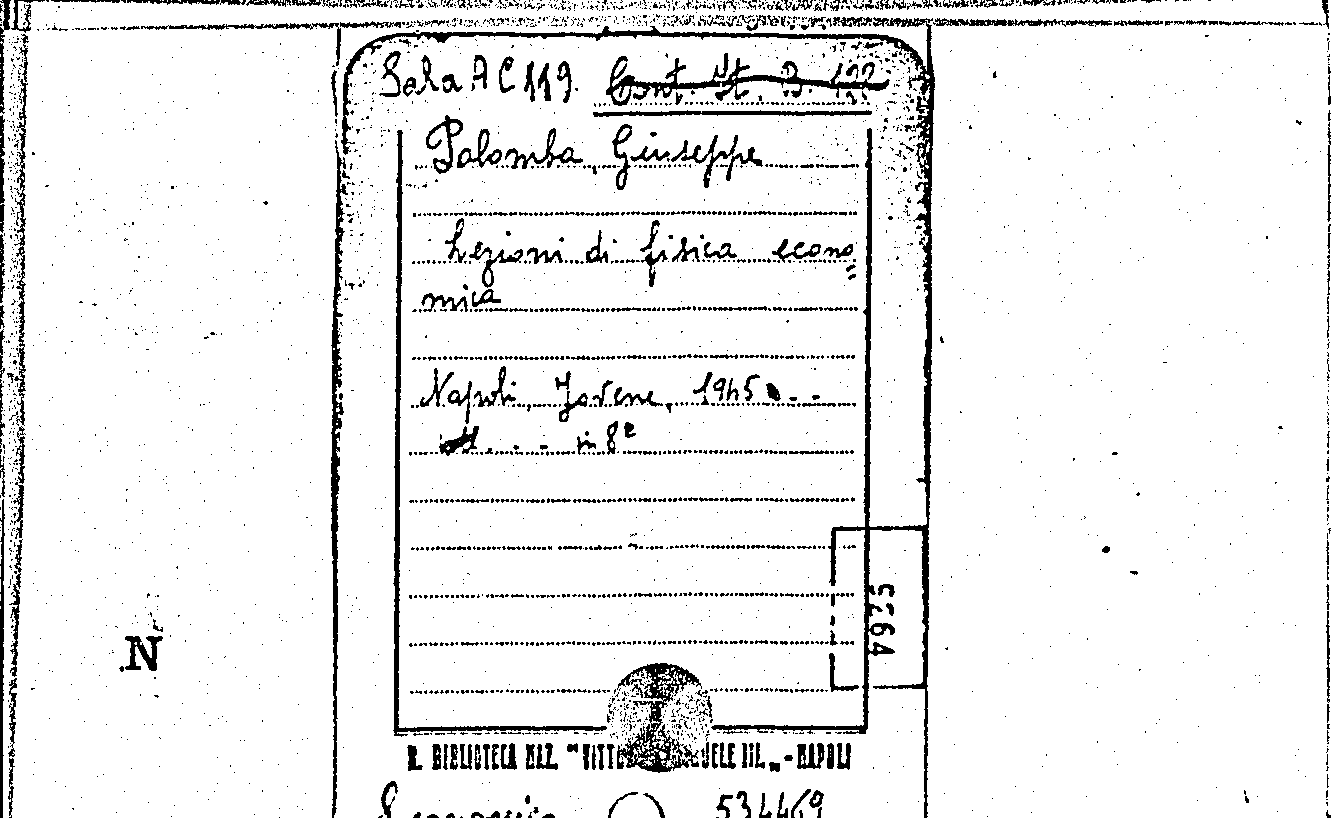 Sala AC 119. Cont. St. B. 122
Palomba, Giuseppe
Lezioni di fisica econo=
mica
Napoli, Jovene, 1945 . - -
. - - in 8º
5264
N
R. BIBLIOTECA NAZ. "VITTO UELE III. „ - NAPOLI
534469